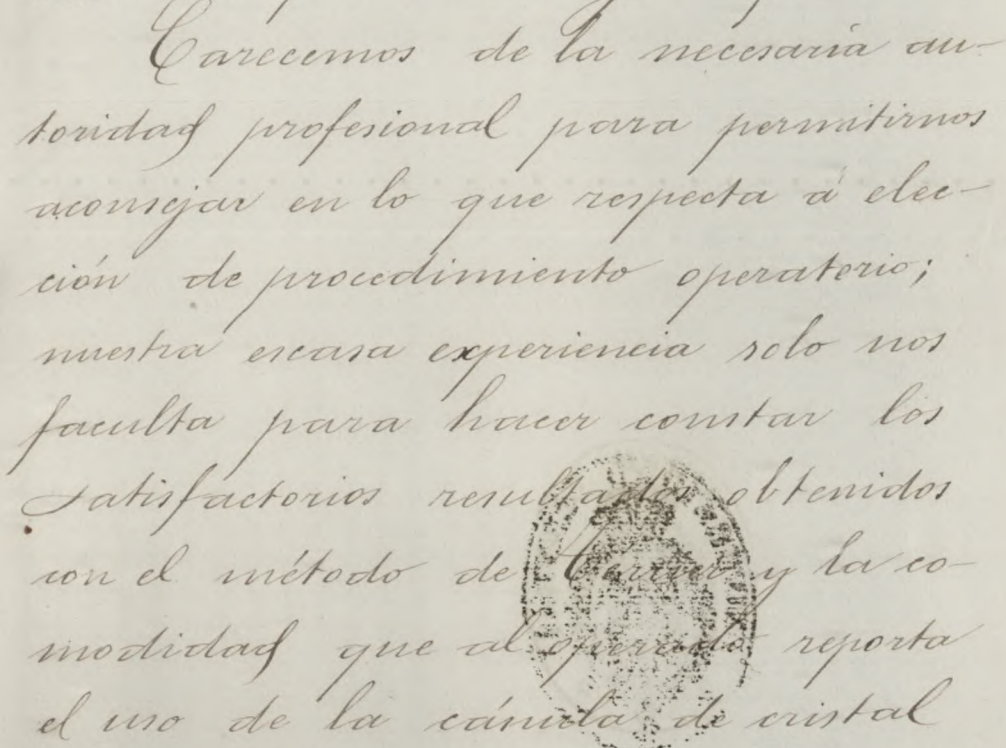 Carecemos de la necesaria au-
toridad profesional para permitirnos
aconsejar en lo que respecta á elec-
ción de procedimiento operatorio;
nuestra escasa experiencia solo nos
faculta para hacer constar los
satisfactorios resultados obtenidos
con el método de y la co-
modidad que al operado reporta
el uso de la cánula de cristal